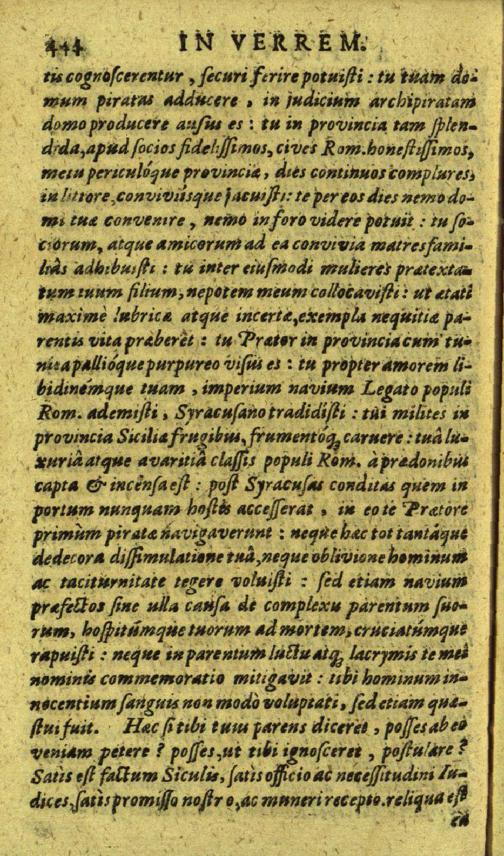 444 IN VERREM.
tis cognoscerentur, securi ferire potuisti : tu tuam do-
mum piratas adducere, in judicium archipiratam
domo producere ausus es : tu in provincia tam splen-
dida, apud socios fidelissimos, cives Rom. honestissimos,
metu periculóque provinciæ, dies continuos complures,
in littore, conviviísque jacuisti : te per eos dies nemo do-
mi tuæ convenire, nemo in foro videre potuit : tu so-
ciorum, atque amicorum ad ea convivia matresfami-
liâs adhibuisti : tu inter ejusmodi mulieres prætexta-
tum tuum filium, nepotem meum collocavisti : ut ætati
maximè lubricæ atque incertæ, exempla nequitiæ pa-
rentis vita præberet : tu Prætor in provincia cum tu-
nica pallióque purpureo visus es : tu propter amorem li-
bidinémque tuam, imperium navium Legato populi
Rom. ademisti, Syracusano tradidisti : tui milites in
provincia Sicilia frugibus, frumentóq; caruere : tuâ lu-
xuriâ atque avaritiâ classis populi Rom. à prædonibus
capta & incensa est : post Syracusas conditas quem in
portum nunquam hostis accesserat, in eo te Prætore
primùm piratæ navigaverunt : neque hæc tot tantáque
dedecora dissimulatione tuâ, neque oblivione hominum
ac taciturnitate tegere voluisti : sed etiam navium
præfectos sine ulla causa de complexu parentum suo-
rum, hospitúmque tuorum ad mortem, cruciatúmque
rapuisti : neque in parentum luctu atq; lacrymis te mei
nominis commemoratio mitigavit : tibi hominum in-
nocentium sanguis non modò voluptati, sed etiam quæ-
stui fuit. Hæc si tibi tuus parens diceret, posses ab eo
veniam petere ? posses, ut tibi ignosceret, postulare ?
Satis est factum Siculis, satis officio ac necessitudini Iu-
dices, satis promisso nostro, ac muneri recepto. reliqua est
ea